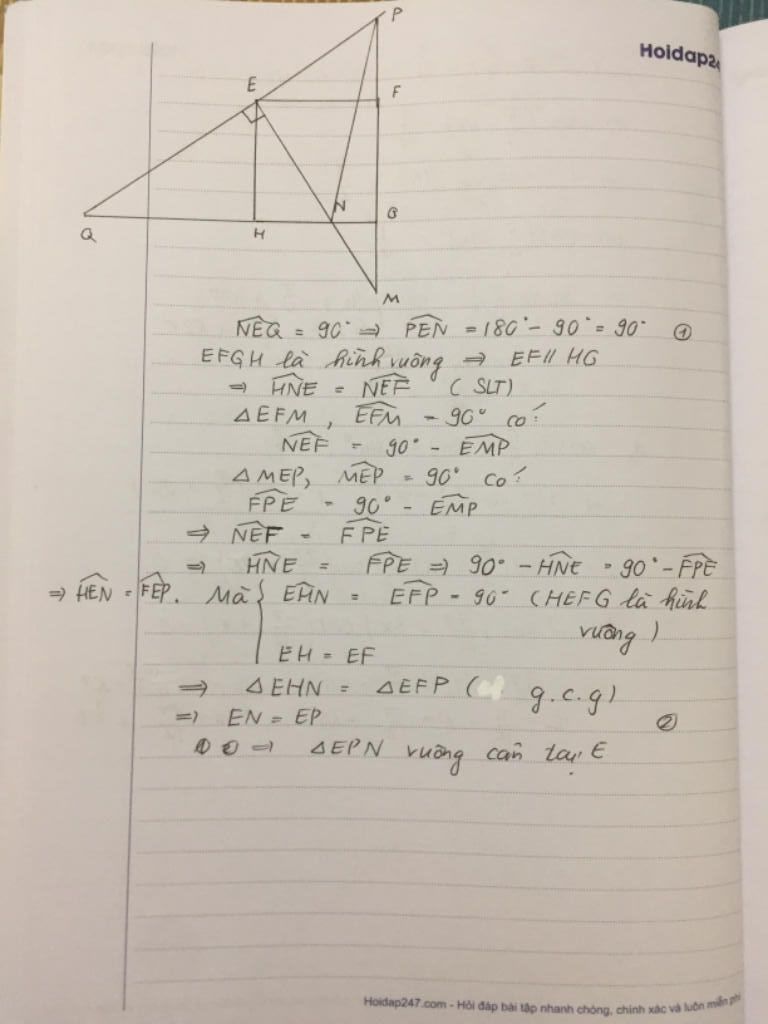 Hoidap24
P
E
F
N
G
Q
H
M
NEQ = 90° ⇒ PEN = 180° - 90° = 90° ①
EFGH là hình vuông ⇒ EF // HG
⇒ HNE = NEF (SLT)
△EFM, EFM = 90° có:
NEF = 90° - EMP
△MEP, MEP = 90° có:
FPE = 90° - EMP
⇒ NEF = FPE
⇒ HNE = FPE ⇒ 90° - HNE = 90° - FPE
⇒ HEN = FEP. Mà { EHN = EFP = 90° (HEFG là hình
vuông)
EH = EF
⇒ △EHN = △EFP ( g.c.g)
⇒ EN = EP ②
① ② ⇒ △EPN vuông cân tại E
Hoidap247.com - Hỏi đáp bài tập nhanh chóng, chính xác và luôn miễn phí